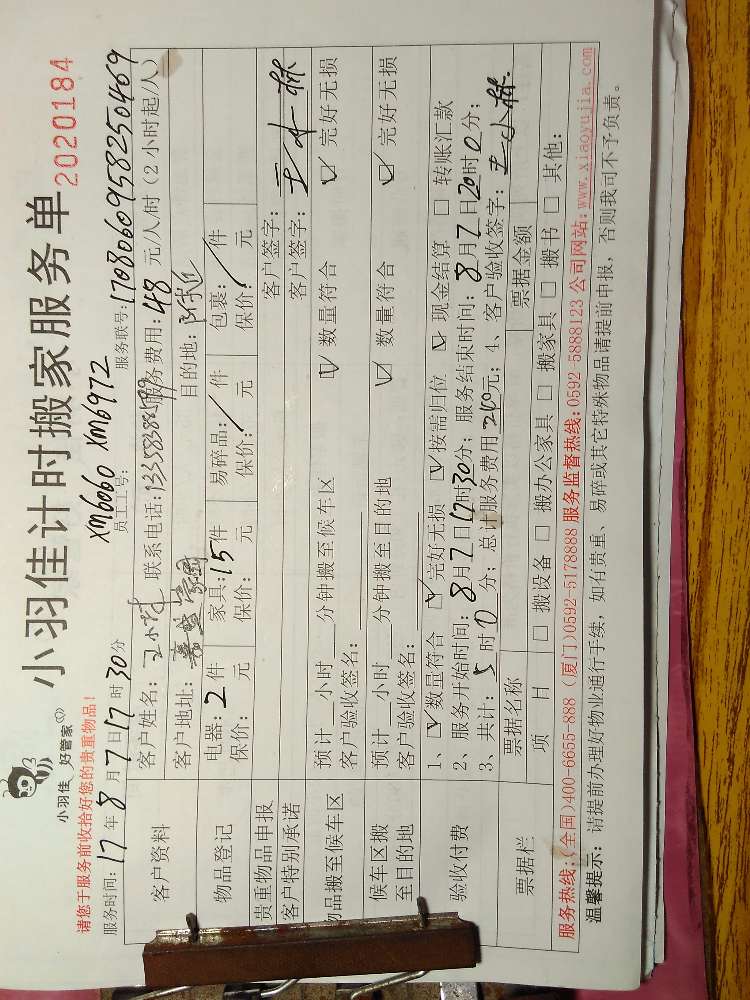 小羽佳计时搬家服务单
2020184
小羽佳 好管家
请您于服务前收拾好您的贵重物品！
XM6060 XM6972
服务时间：17年8月7日17时30分 员工工号： 服务联号：1708060958250469
客户资料 客户姓名： 联系电话： 服务费用：48元/人/时（2小时起/人）
客户地址： 目的地：附近
物品登记 电器：2件 家具：15件 易碎品：/件 包裹：/件
保价： 元 保价： 元 保价： 元 保价：/元
贵重物品申报 客户签字：
客户特别承诺 客户签字：王小林
物品搬至候车区 预计 小时 分钟搬至候车区 ☑ 数量符合 ☑ 完好无损
客户验收签名：
候车区搬至目的地 预计 小时 分钟搬至目的地 ☑ 数量符合 ☑ 完好无损
客户验收签名：
验收付费 1、☑ 数量符合 ☑ 完好无损 ☑ 按需归位 ☑ 现金结算 □ 转账汇款
2、服务开始时间：8月7日17时30分；服务结束时间：8月7日20时0分；
3、共计：5时0分；总计服务费用240元；4、客户验收签字：王小林
票据栏 票据名称 票据金额
项 目 □ 搬设备 □ 搬办公家具 □ 搬家具 □ 搬书 □ 其他：
服务热线：(全国)400-6655-888 (厦门)0592-5178888 服务监督热线：0592-5888123 公司网站：www.xiaoyujia.com
温馨提示：请提前办理好物业通行手续，如有贵重、易碎或其它特殊物品请提前申报，否则我司不予负责。